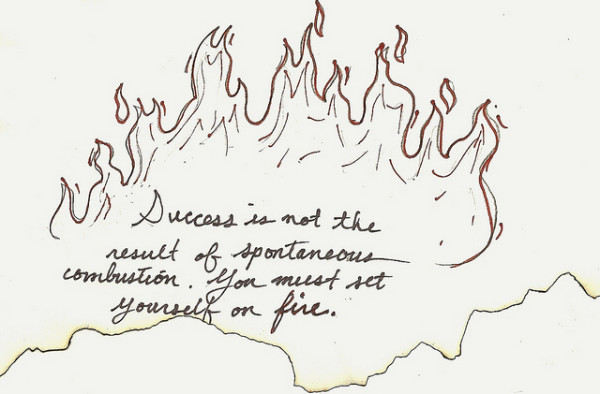 Success is not the
result of spontaneous
combustion. You must set
yourself on fire.